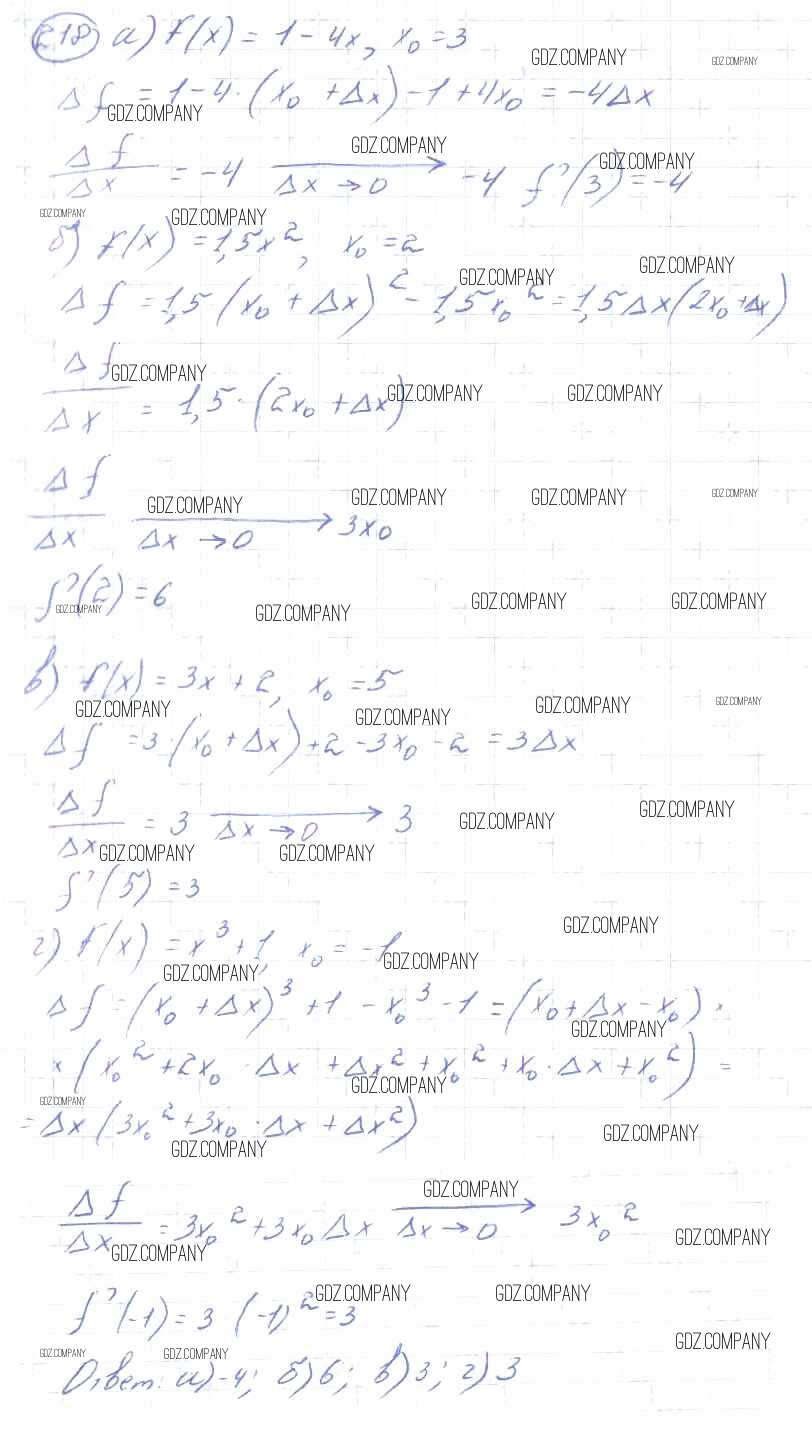 218 а) f(x) = 1 - 4x, x₀ = 3
GDZ.COMPANY GDZ.COMPANY
Δf = 1 - 4·(x₀ + Δx) - 1 + 4x₀ = -4Δx
GDZ.COMPANY
GDZ.COMPANY GDZ.COMPANY
Δf/Δx = -4 ⟶ (Δx → 0) -4 f'(3) = -4
GDZ.COMPANY GDZ.COMPANY
б) f(x) = 1,5x², x₀ = 2
GDZ.COMPANY GDZ.COMPANY
Δf = 1,5(x₀ + Δx)² - 1,5x₀² = 1,5Δx(2x₀ + Δx)
GDZ.COMPANY GDZ.COMPANY GDZ.COMPANY
Δf/Δx = 1,5·(2x₀ + Δx)
GDZ.COMPANY GDZ.COMPANY GDZ.COMPANY GDZ.COMPANY
Δf/Δx ⟶ (Δx → 0) 3x₀
f'(2) = 6
GDZ.COMPANY GDZ.COMPANY GDZ.COMPANY GDZ.COMPANY
в) f(x) = 3x + 2, x₀ = 5
GDZ.COMPANY GDZ.COMPANY GDZ.COMPANY GDZ.COMPANY
Δf = 3·(x₀ + Δx) + 2 - 3x₀ - 2 = 3Δx
GDZ.COMPANY GDZ.COMPANY
Δf/Δx = 3 ⟶ (Δx → 0) 3
GDZ.COMPANY GDZ.COMPANY
f'(5) = 3
GDZ.COMPANY
г) f(x) = x³ + 1, x₀ = -1
GDZ.COMPANY GDZ.COMPANY
Δf = (x₀ + Δx)³ + 1 - x₀³ - 1 = (x₀ + Δx - x₀) ×
GDZ.COMPANY
× (x₀² + 2x₀·Δx + Δx² + x₀² + x₀·Δx + x₀²) =
GDZ.COMPANY GDZ.COMPANY
= Δx(3x₀² + 3x₀·Δx + Δx²)
GDZ.COMPANY GDZ.COMPANY
GDZ.COMPANY
Δf/Δx = 3x₀² + 3x₀Δx ⟶ (Δx → 0) 3x₀²
GDZ.COMPANY GDZ.COMPANY
GDZ.COMPANY GDZ.COMPANY
f'(-1) = 3 (-1)² = 3
GDZ.COMPANY
GDZ.COMPANY GDZ.COMPANY
Ответ: а) -4; б) 6; в) 3; г) 3